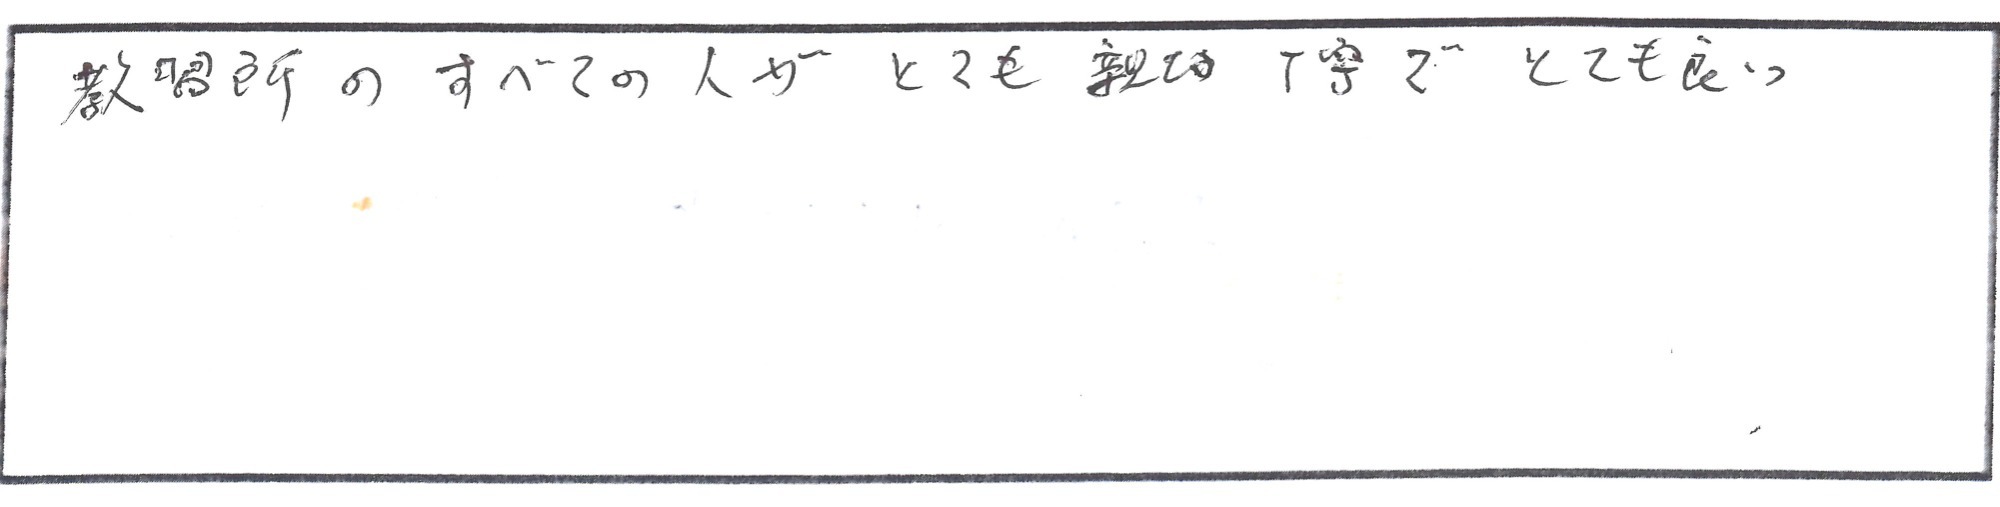 教習所のすべての人がとても親切丁寧でとても良い